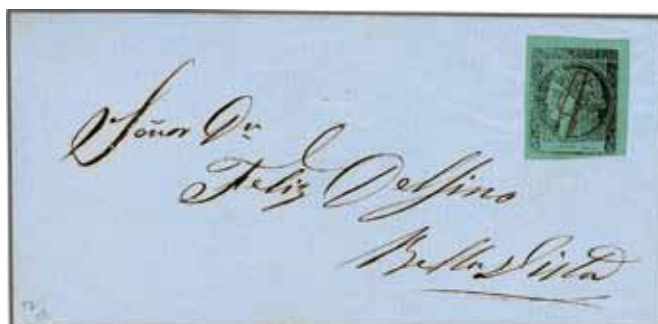 Señor Dn
Feliz Delfino
Bella Vista